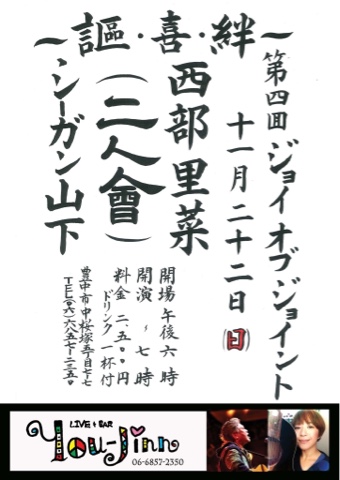 第四回 ジョイ オブ ジョイント
十一月二十二日(日)
~謳・喜・絆~
西部里菜
(二人會)
シーガン山下
開場 午後 六 時
開演 〃 七 時
料金 二、五〇〇円
ドリンク 一杯付
豊中市中桜塚五丁目七-七
TEL(〇六)六八五七-二三五〇
LIVE & BAR
You-Jinn
06-6857-2350